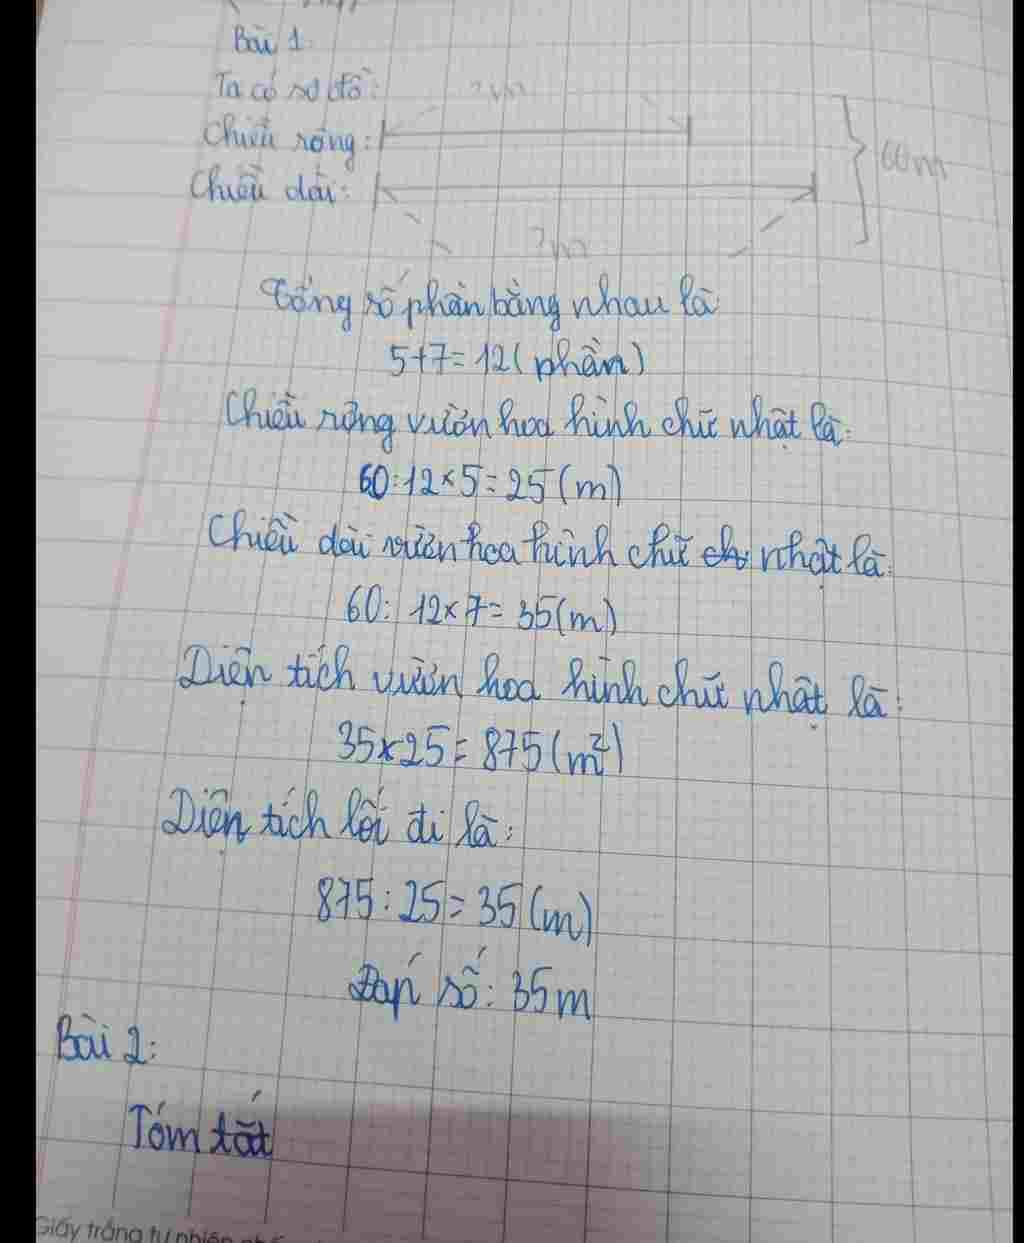 Bài 1:
Ta có sơ đồ:
?m
Chiều rộng:
60m
Chiều dài:
?m
Tổng số phần bằng nhau là
5+7=12( phần)
Chiều rộng vườn hoa hình chữ nhật là:
60:12×5=25(m)
Chiều dài vườn hoa hình chữ nhật là:
60: 12×7=35(m)
Diện tích vườn hoa hình chữ nhật là:
35×25=875(m²)
Diện tích lối đi là:
875:25=35(m)
Đáp số: 35m
Bài 2:
Tóm tắt
Giấy trắng tự nhiên